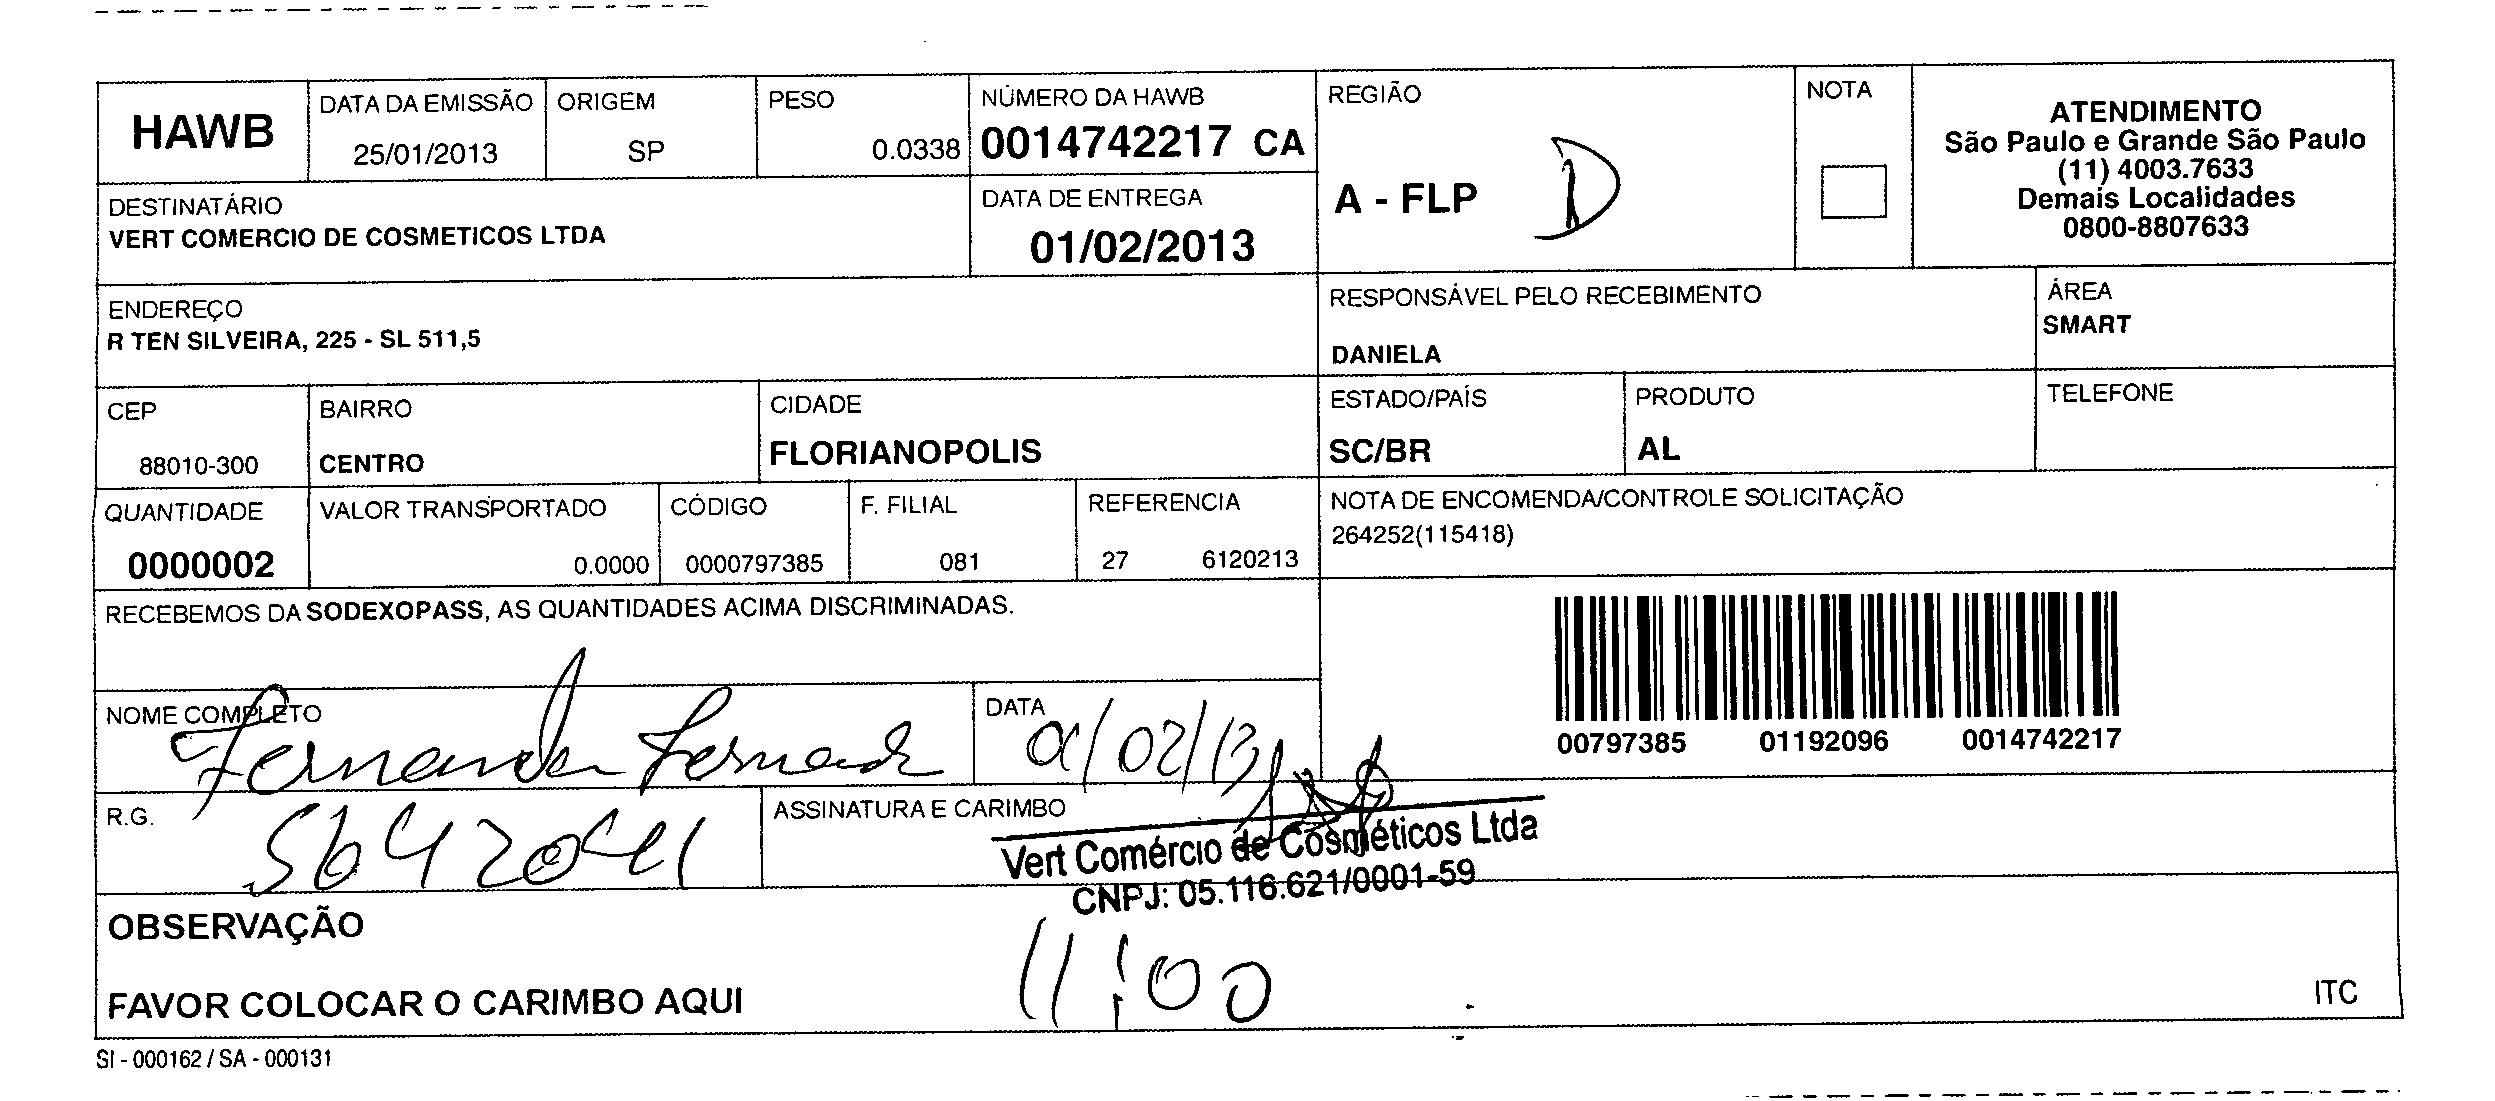 HAWB
DATA DA EMISSÃO
25/01/2013
ORIGEM
SP
PESO
0.0338
NÚMERO DA HAWB
0014742217 CA
REGIÃO
A - FLP
D
NOTA
ATENDIMENTO
São Paulo e Grande São Paulo
(11) 4003.7633
Demais Localidades
0800-8807633
DESTINATÁRIO
VERT COMERCIO DE COSMETICOS LTDA
DATA DE ENTREGA
01/02/2013
ENDEREÇO
R TEN SILVEIRA, 225 - SL 511,5
RESPONSÁVEL PELO RECEBIMENTO
DANIELA
ÁREA
SMART
CEP
88010-300
BAIRRO
CENTRO
CIDADE
FLORIANOPOLIS
ESTADO/PAÍS
SC/BR
PRODUTO
AL
TELEFONE
QUANTIDADE
0000002
VALOR TRANSPORTADO
0.0000
CÓDIGO
0000797385
F. FILIAL
081
REFERENCIA
27 6120213
NOTA DE ENCOMENDA/CONTROLE SOLICITAÇÃO
264252(115418)
RECEBEMOS DA SODEXOPASS, AS QUANTIDADES ACIMA DISCRIMINADAS.
00797385 01192096 0014742217
NOME COMPLETO
Fernanda
DATA
01/02/13
R.G.
5642041
ASSINATURA E CARIMBO
Vert Comércio de Cosméticos Ltda
CNPJ: 05.116.621/0001-59
OBSERVAÇÃO
11:00
FAVOR COLOCAR O CARIMBO AQUI
ITC
SI - 000162 / SA - 000131